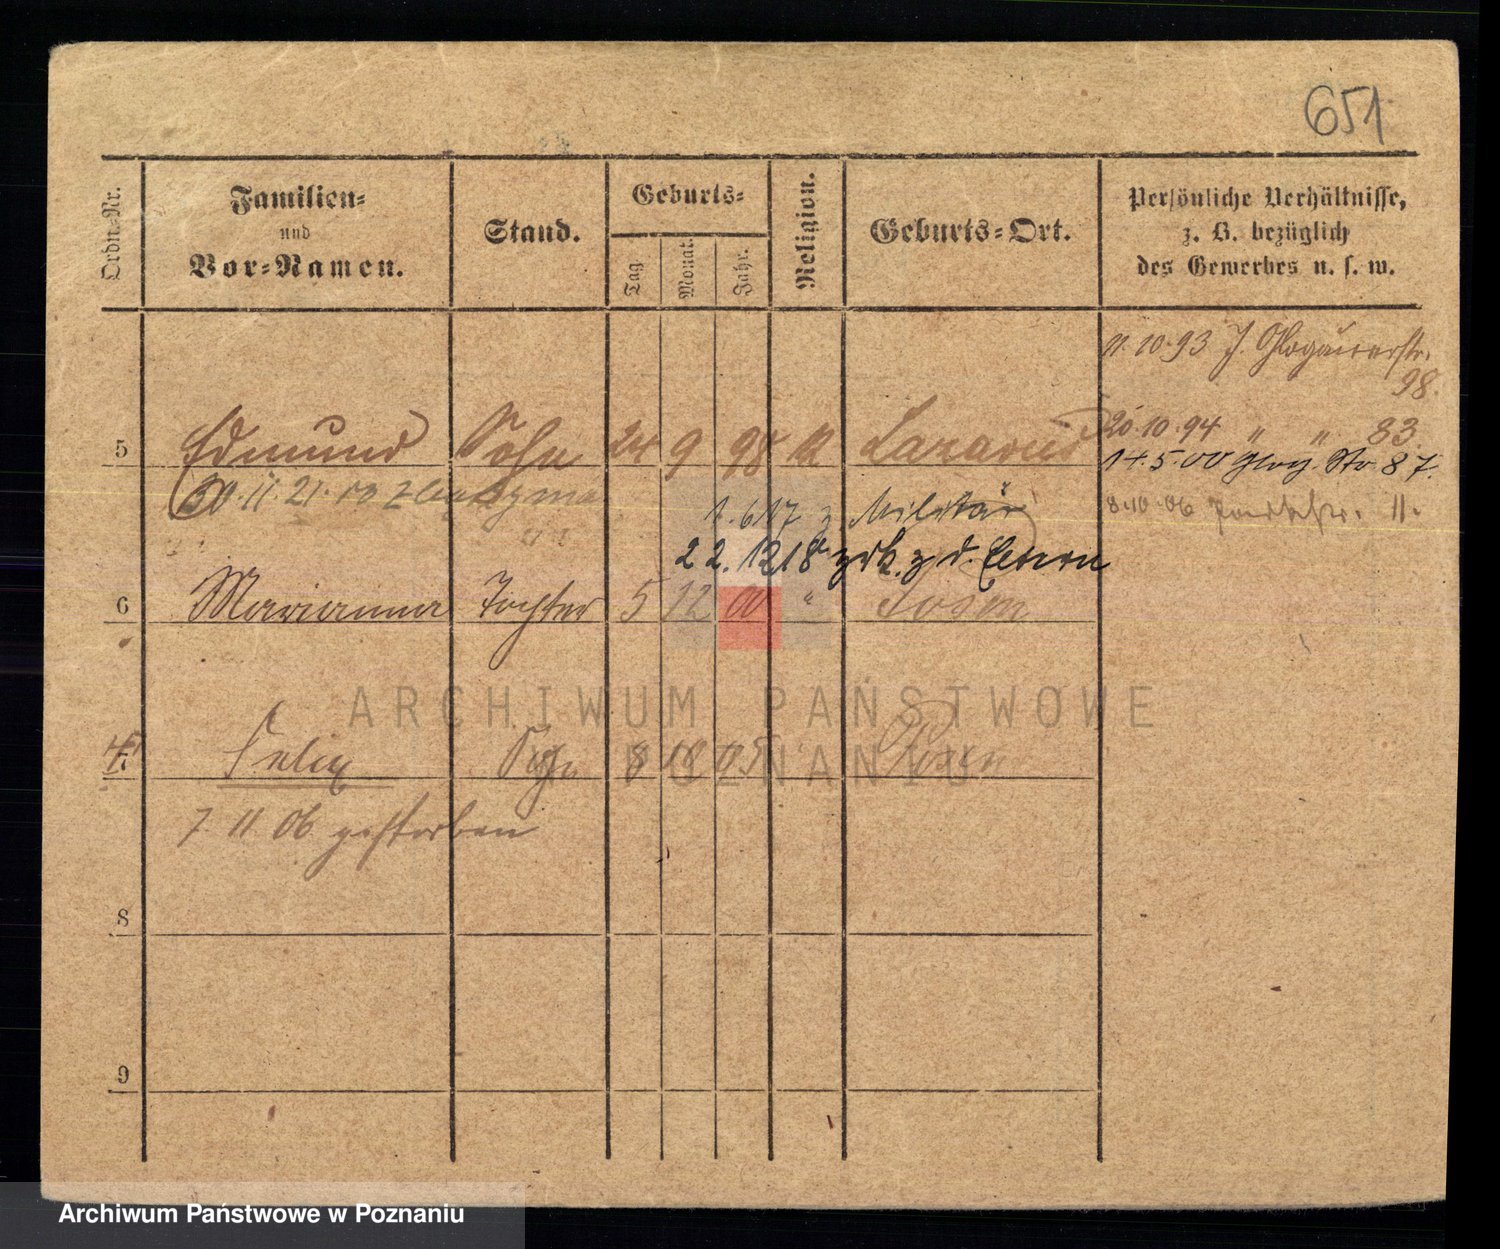 651
Ordn.-Nr.
Familien=
und
Vor=Namen.
Stand.
Geburts=
Tag.
Monat.
Jahr.
Religion.
Geburts=Ort.
Persönliche Verhältnisse,
z. B. bezüglich
des Gewerbes u. s. w.
11.10.93 J. Glogauerstr.
98.
5 Edmund Sohn 24 9 98 k Lazarus
20.10.94 " " 83.
14.5.00 Glog. Str. 87.
30.11.21
8.10.06 11.
1.6.17 z Militär
22.12.18 zrk. z d. Eltern
6 Marianna Tochter 5 12 00 " Posen
7 Felix Sohn 8 10 05 Posen
7 11 06 gestorben
8
9
ARCHIWUM PAŃSTWOWE
W POZNANIU
Archiwum Państwowe w Poznaniu